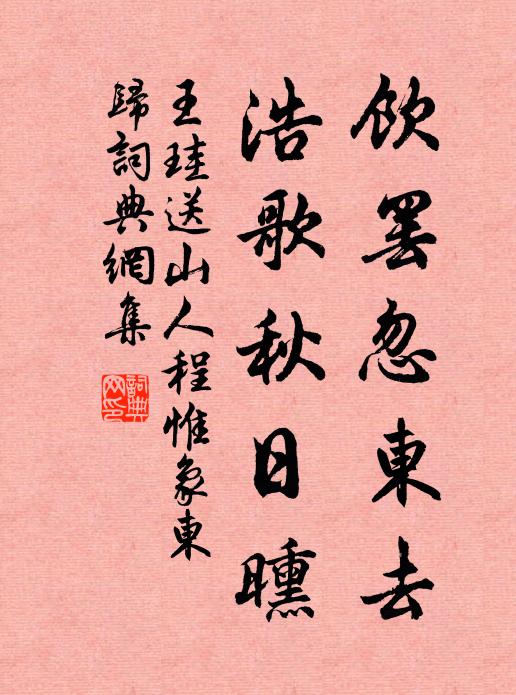 飲罷忽東去
浩歌秋日曛
王珪送山人程惟象東
歸詞典網集
詞典網印